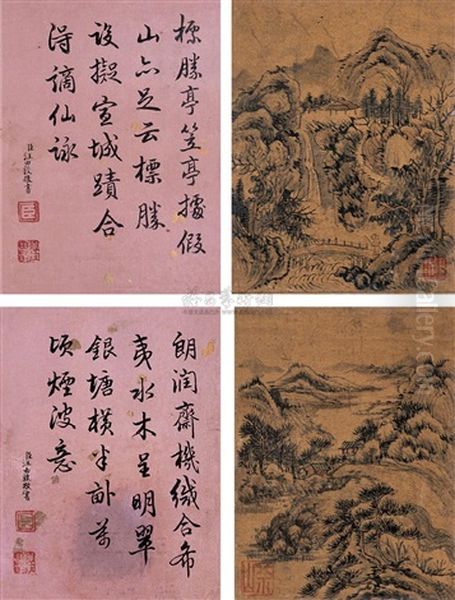 標勝亭笠亭據假
山亦足云標勝
設擬宣城蹟合
得謫仙詠
臣汪由敦敬書
朗潤齋機緘合希
夷水木呈明翠
銀塘橫半畝萬
頃煙波意
臣汪由敦敬書